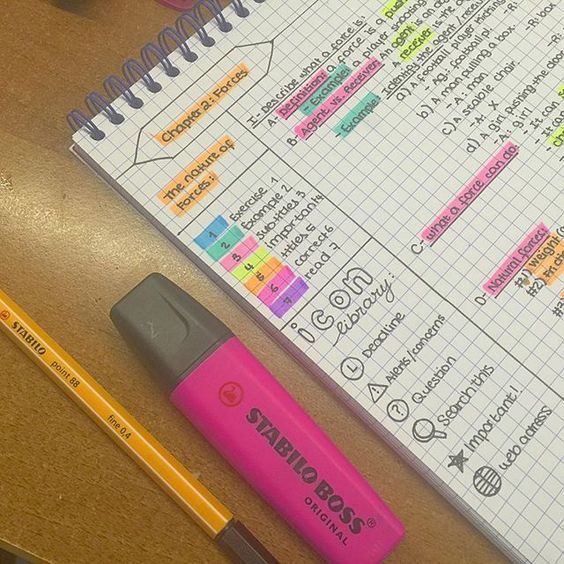 Chapter 2: Forces
The nature of
Forces:
1 Exercise 1
2 Example 2
3 subtitles 3
4 important 4
5 titles 5
6 correct 6
7 read 7
icon
library:
Deadline
Alerts/concerns
Question
Search this
Important!
web adress
I- Describe what a force is:
A- Definition: a force is a
- Example: a player
B- Agent vs. Receiver
an agent is an
a receiver is the
- Example:
a) A football player
- Ag: football
b) A man pulling a box.
- A: man
c) A stable chair.
- A: X
d) A girl pushing the
- A: girl
- It can
- It can
C- what a force can do:
D- Natural forces:
#1) weight
#2)
#3
-R: box
-R:
STABILO
point 88
fine 0,4
STABILO BOSS®
ORIGINAL